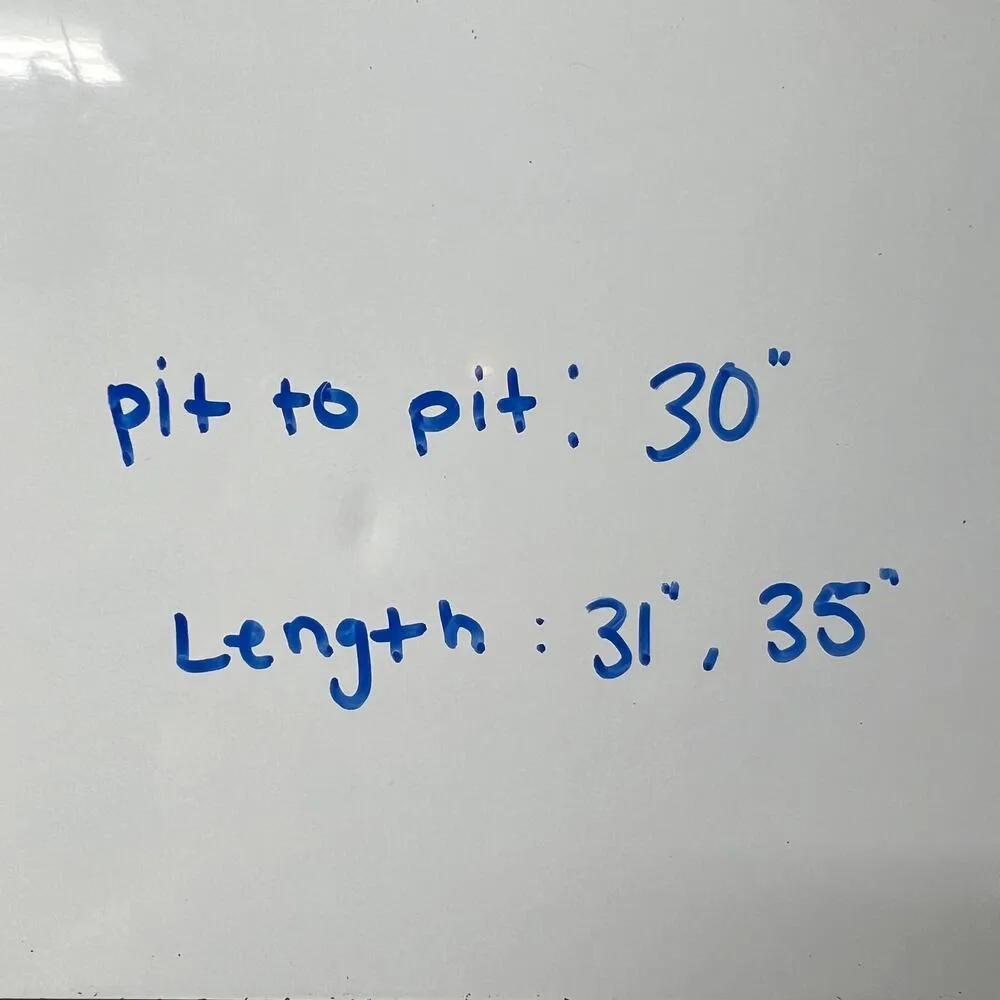 pit to pit: 30"
Length: 31", 35"